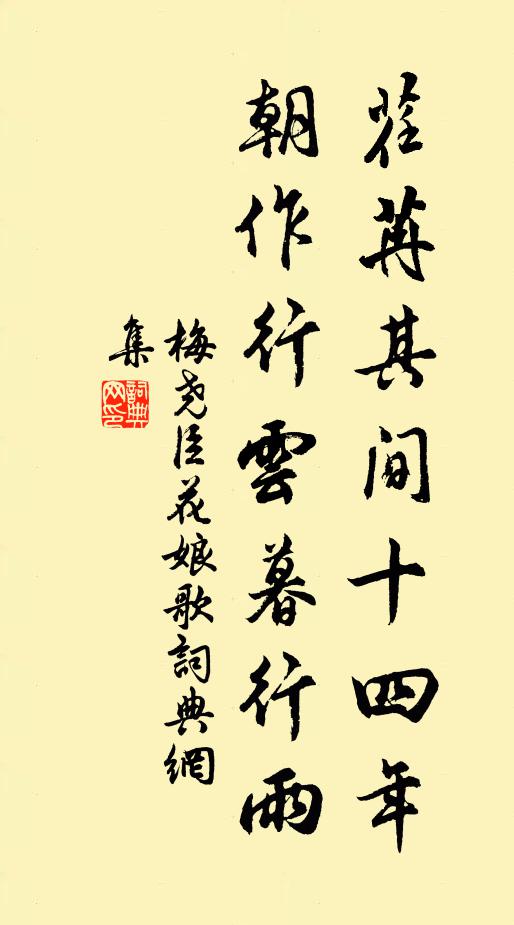 荏苒其間十四年
朝作行雲暮行雨
梅尧臣花娘歌詞典網
集
詞典
网印